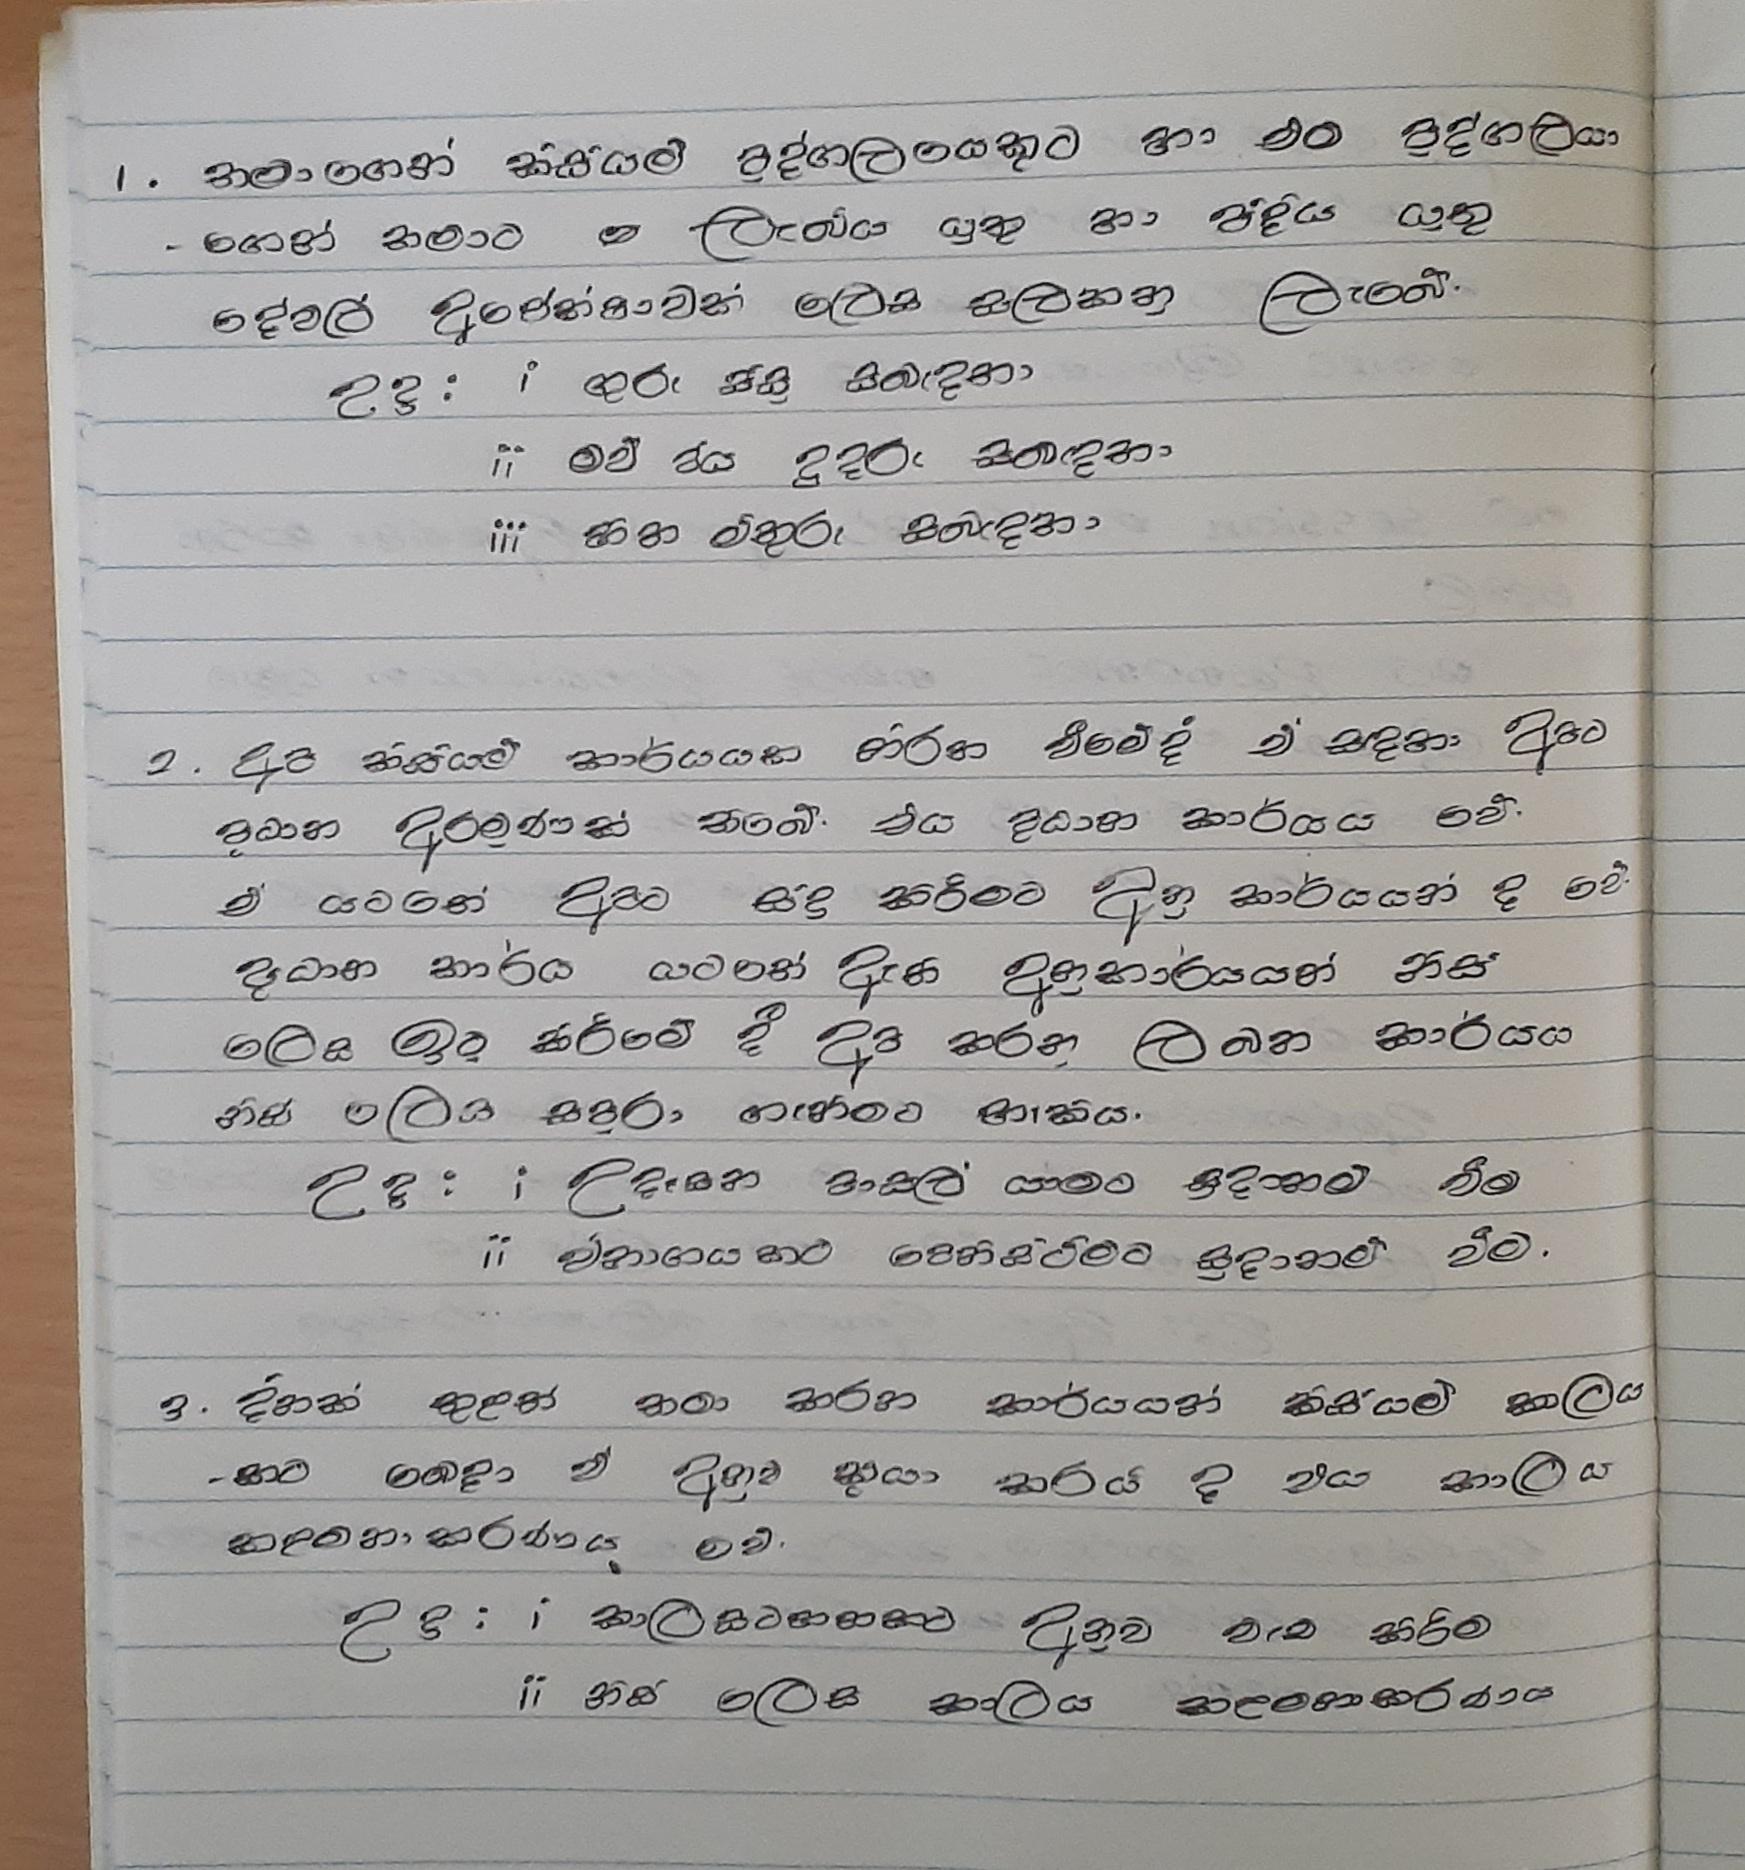 1. තමාගෙන් කිසියම් පුද්ගලයෙකුට හා එම පුද්ගලයා
- ගෙන් තමාට ලැබිය යුතු හා සිදිය යුතු
දේවල් අපේක්ෂාවන් ලෙස සලකනු ලැබේ.
උදා : i ගුරු සිසු සබැඳතා
ii මව් පිය දූදරු සබඳතා
iii හිත මිතුරු සබැඳතා
2. අප කිසියම් කාර්යයක නිරත වීමේදී ඒ සඳහා අපට
ප්‍රධාන අරමුණක් තිබේ. එය ප්‍රධාන කාර්යය වේ.
ඒ යටතේ අපට සිදු කිරීමට අනු කාර්යයන් ද වේ.
ප්‍රධාන කාර්ය යටතේ ඇති අනුකාර්යයන් නිසි
ලෙස ඉටු කිරීමේ දී අප කරනු ලබන කාර්යය
නිසි ලෙස සපුරා ගැනීමට හැකිය.
උදා : i උදෑසන පාසල් යාමට සූදානම් වීම
ii විභාගයකට පෙනීසිටීමට සූදානම් වීම.
3. දිනක් තුළත් තමා කරන කාර්යයන් කිසියම් කාලය
- කට බෙදා ඒ අනුව ක්‍රියා කරයි ද එය කාලය
කළමනාකරණය වේ.
උදා : i කාලසටහනකට අනුව වැඩ කිරීම
ii නිසි ලෙස කාලය කළමනාකරණය